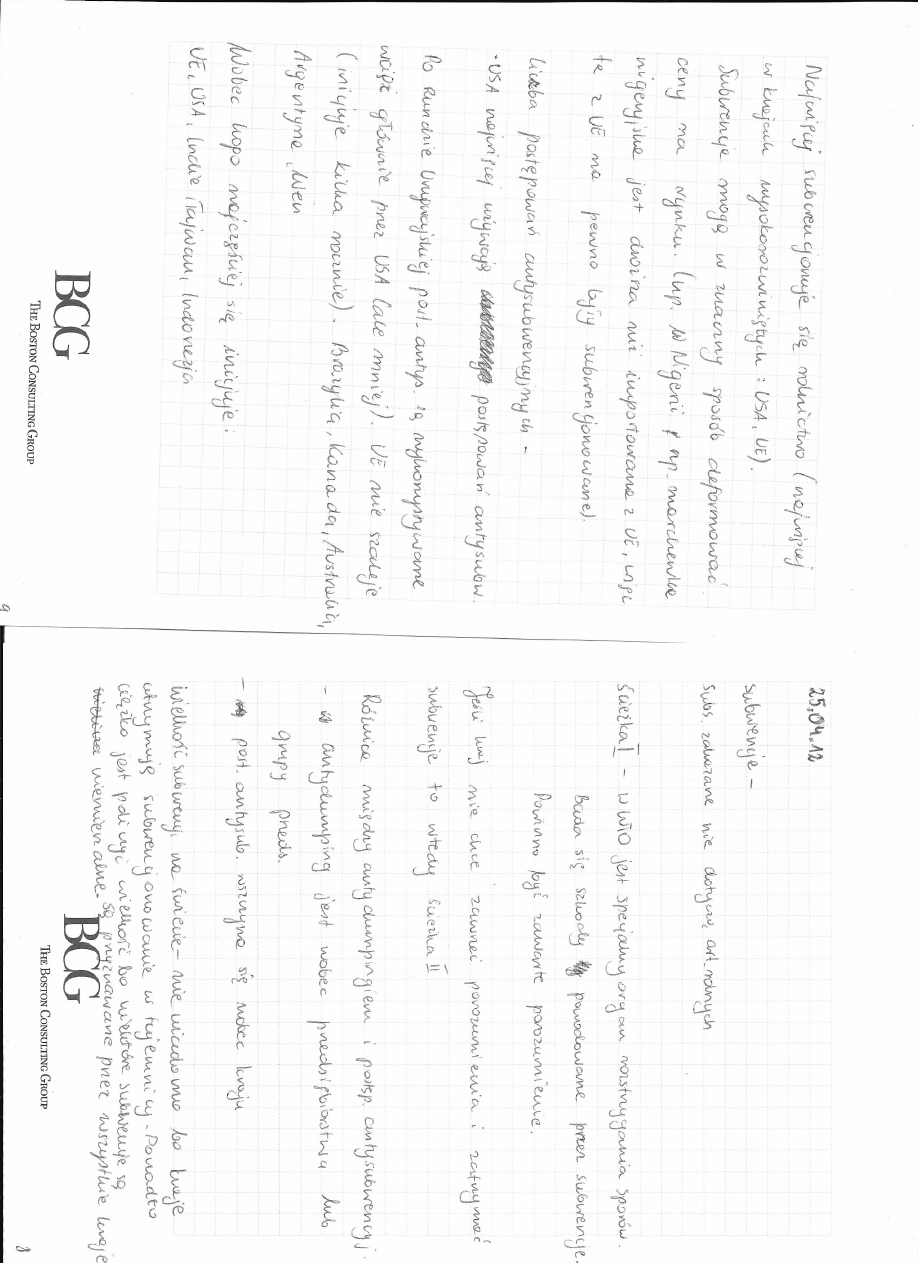 25.04.12
subwencje -
subs. zakazane nie dotyczą art. rolnych
ścieżka I - w WTO jest specjalny organ rozstrzygania sporów.
Bada się szkody powodowane przez subwencje.
Powinno być zawarte porozumienie.
Jeśli kraj nie chce zawrzeć porozumienia i zatrzymać
subwencje to wtedy ścieżka II
Różnica między antydumpingiem i postęp. antysubwencyj.
- antydumping jest wobec przedsiębiorstwa lub
grupy przeds.
- post. antysub. wszczyna się wobec kraju
Wielkość subwencji na świecie - nie wiadomo bo kraje
utrzymują subwencjonowanie w tajemnicy. Ponadto
ciężko jest policzyć wielkość bo niektóre subwencje są
niemierzalne są przyznawane przez wszystkie kraje
BCG
THE BOSTON CONSULTING GROUP
8
Najwięcej subwencjonuje się rolnictwo (najwięcej
w krajach wysokorozwiniętych: USA, UE).
Subwencje mogą w znaczny sposób deformować
ceny na rynku. (np. w Nigerii np. marchewka
nigeryjska jest droższa niż importowana z UE, więc
te z UE na pewno były subwencjonowane).
Liczba postępowań antysubwencyjnych -
• USA najwięcej używają postępowań antysubw.
Po Rundzie Urugwajskiej post. antys. są wykorzystywane
wciąż głównie przez USA (ale mniej). UE nie szaleje
(inicjuje kilka rocznie). Brazylia, Kanada, Australia,
Argentyna,
Wobec kogo najczęściej się inicjuje:
UE, USA, Indie, Tajwan, Indonezja
BCG
THE BOSTON CONSULTING GROUP
9